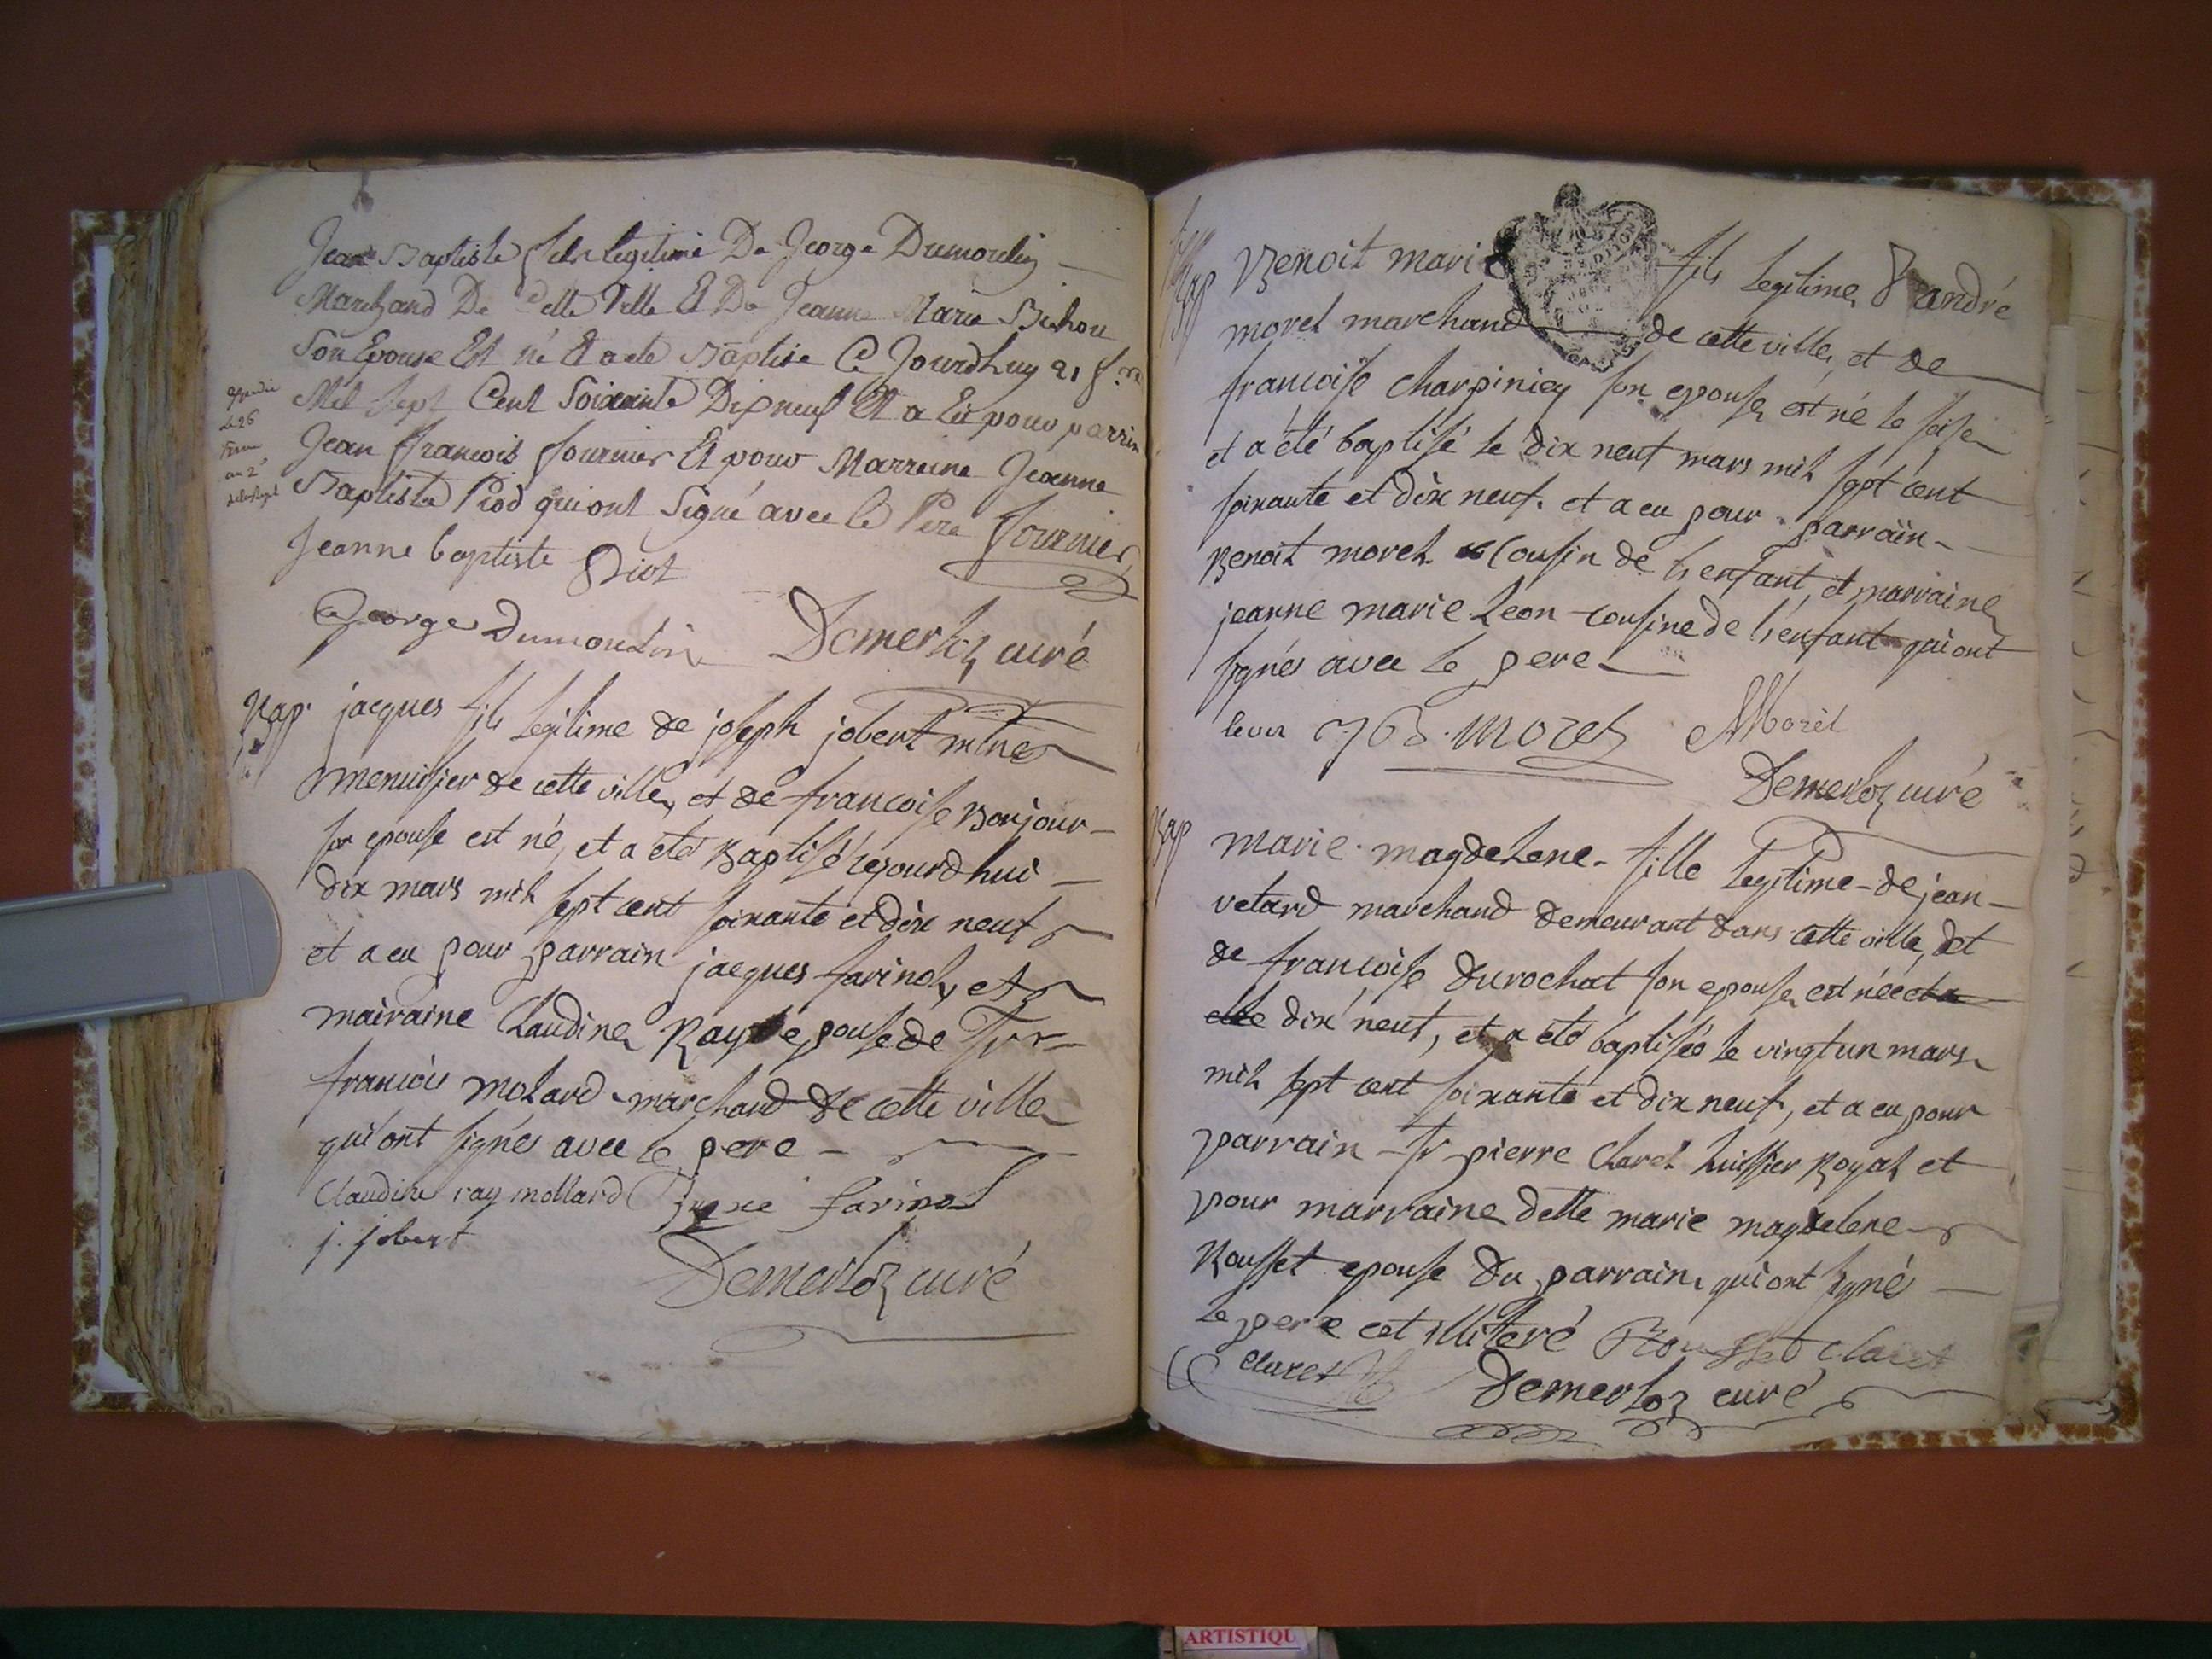 Jean Baptiste fils legitime De George Dumoulin
Marchand De cette Ville Et De Jeanne Marie
Son Epouse Est né Et a ete Baptise Ce Jourdhuy 21
Mil Sept Cent Soixante Dixneuf Et a Eu pour parrin
Jean francois fournier Et pour Marreine Jeanne
Baptiste Piod qui ont Signé avec le Pere fournier
Jeanne baptiste Piot
George Dumoulin Demerloz curé
expedié
le 26
an 2
Bap. jacques fils legitime de joseph jobert mtre
menuisier de cette ville, et de francoise Bonjour
son epouse est né, et a eté Baptisé cejourdhui
dix mars mil sept cent soixante et dix neuf
et a eu pour parrain jacques farinol, et
mairaine Claudine Ray epouse de Sr
francois molard marchand de cette ville
qui ont signés avec le pere
Claudine ray mollard farinol
j. jobert
Demerloz curé
Bap Benoit marie fils legitime d'andré
morel marchand de cette ville, et de
francoise charpiniey son epouse, est né le seise
et a été baptisé le dix neuf mars mil sept cent
soixante et dix neuf. et a eu pour parrain
Benoit morel Cousin de l'enfant, et marraine
jeanne marie Leon cousine de l'enfant qui ont
signés avec le pere
leon morel Morel
Demerloz curé
Bap marie magdelene fille legitime de jean
vetard marchand demeurant dans cette ville, et
de francoise durochat son epouse, est née et a
eté dix neuf, et a eté baptisée le vingt un mars
mil sept cent soixante et dix neuf, et a eu pour
parrain Sr pierre Claret huissier Royal et
pour marraine delle marie magdelene
Rousset epouse du parrain, qui ont signés
le pere est illiteré Rousset claret
claret Demerloz curé
ARTISTIQU